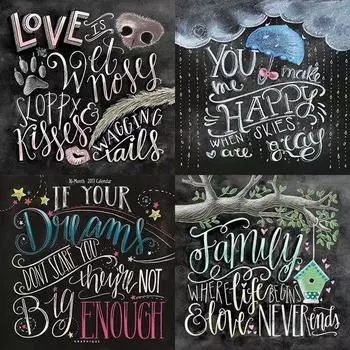 LOVE IS
Wet Noses
SLOPPY
Kisses &
WAGGING
tails
YOU make
me
HAPPY
WHEN SKIES
are gray
16-Month 2017 Calendar
IF YOUR
Dreams
DON'T SCARE YOU
they're NOT
BIG ENOUGH
GRAPHIQUE
Family
WHERE life BEGINS
& love NEVER ends